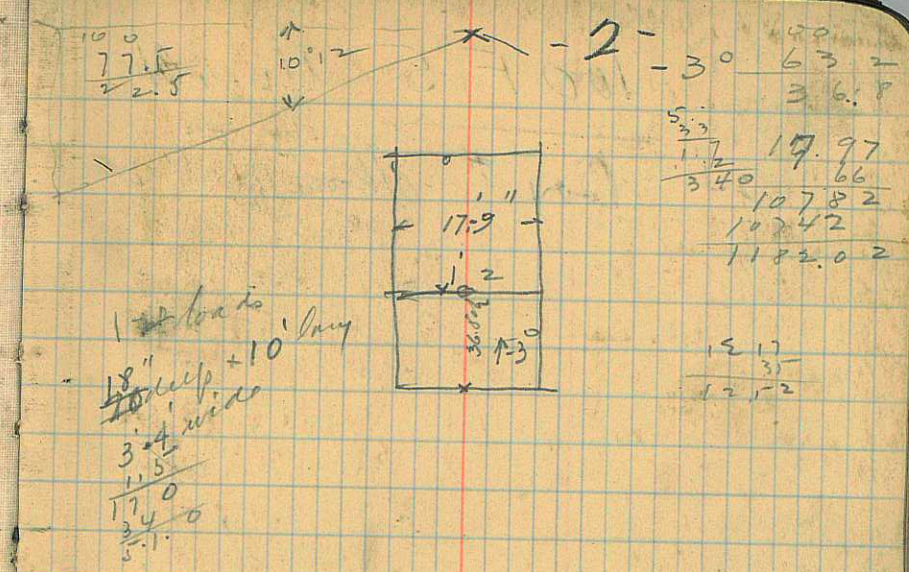 100
77.5
22.5
10° 12
- 2 -
- 3°
00
63 2
36.8
5
3.3
1.7
2
340
17.97
66
10782
10742
1182.02
17'-9"
1' 2
36.8
-3°
1 loads
18" deep + 10' long
3'-4' wide
1.5
170
34 0
5.1.
12 17
35
12,-2